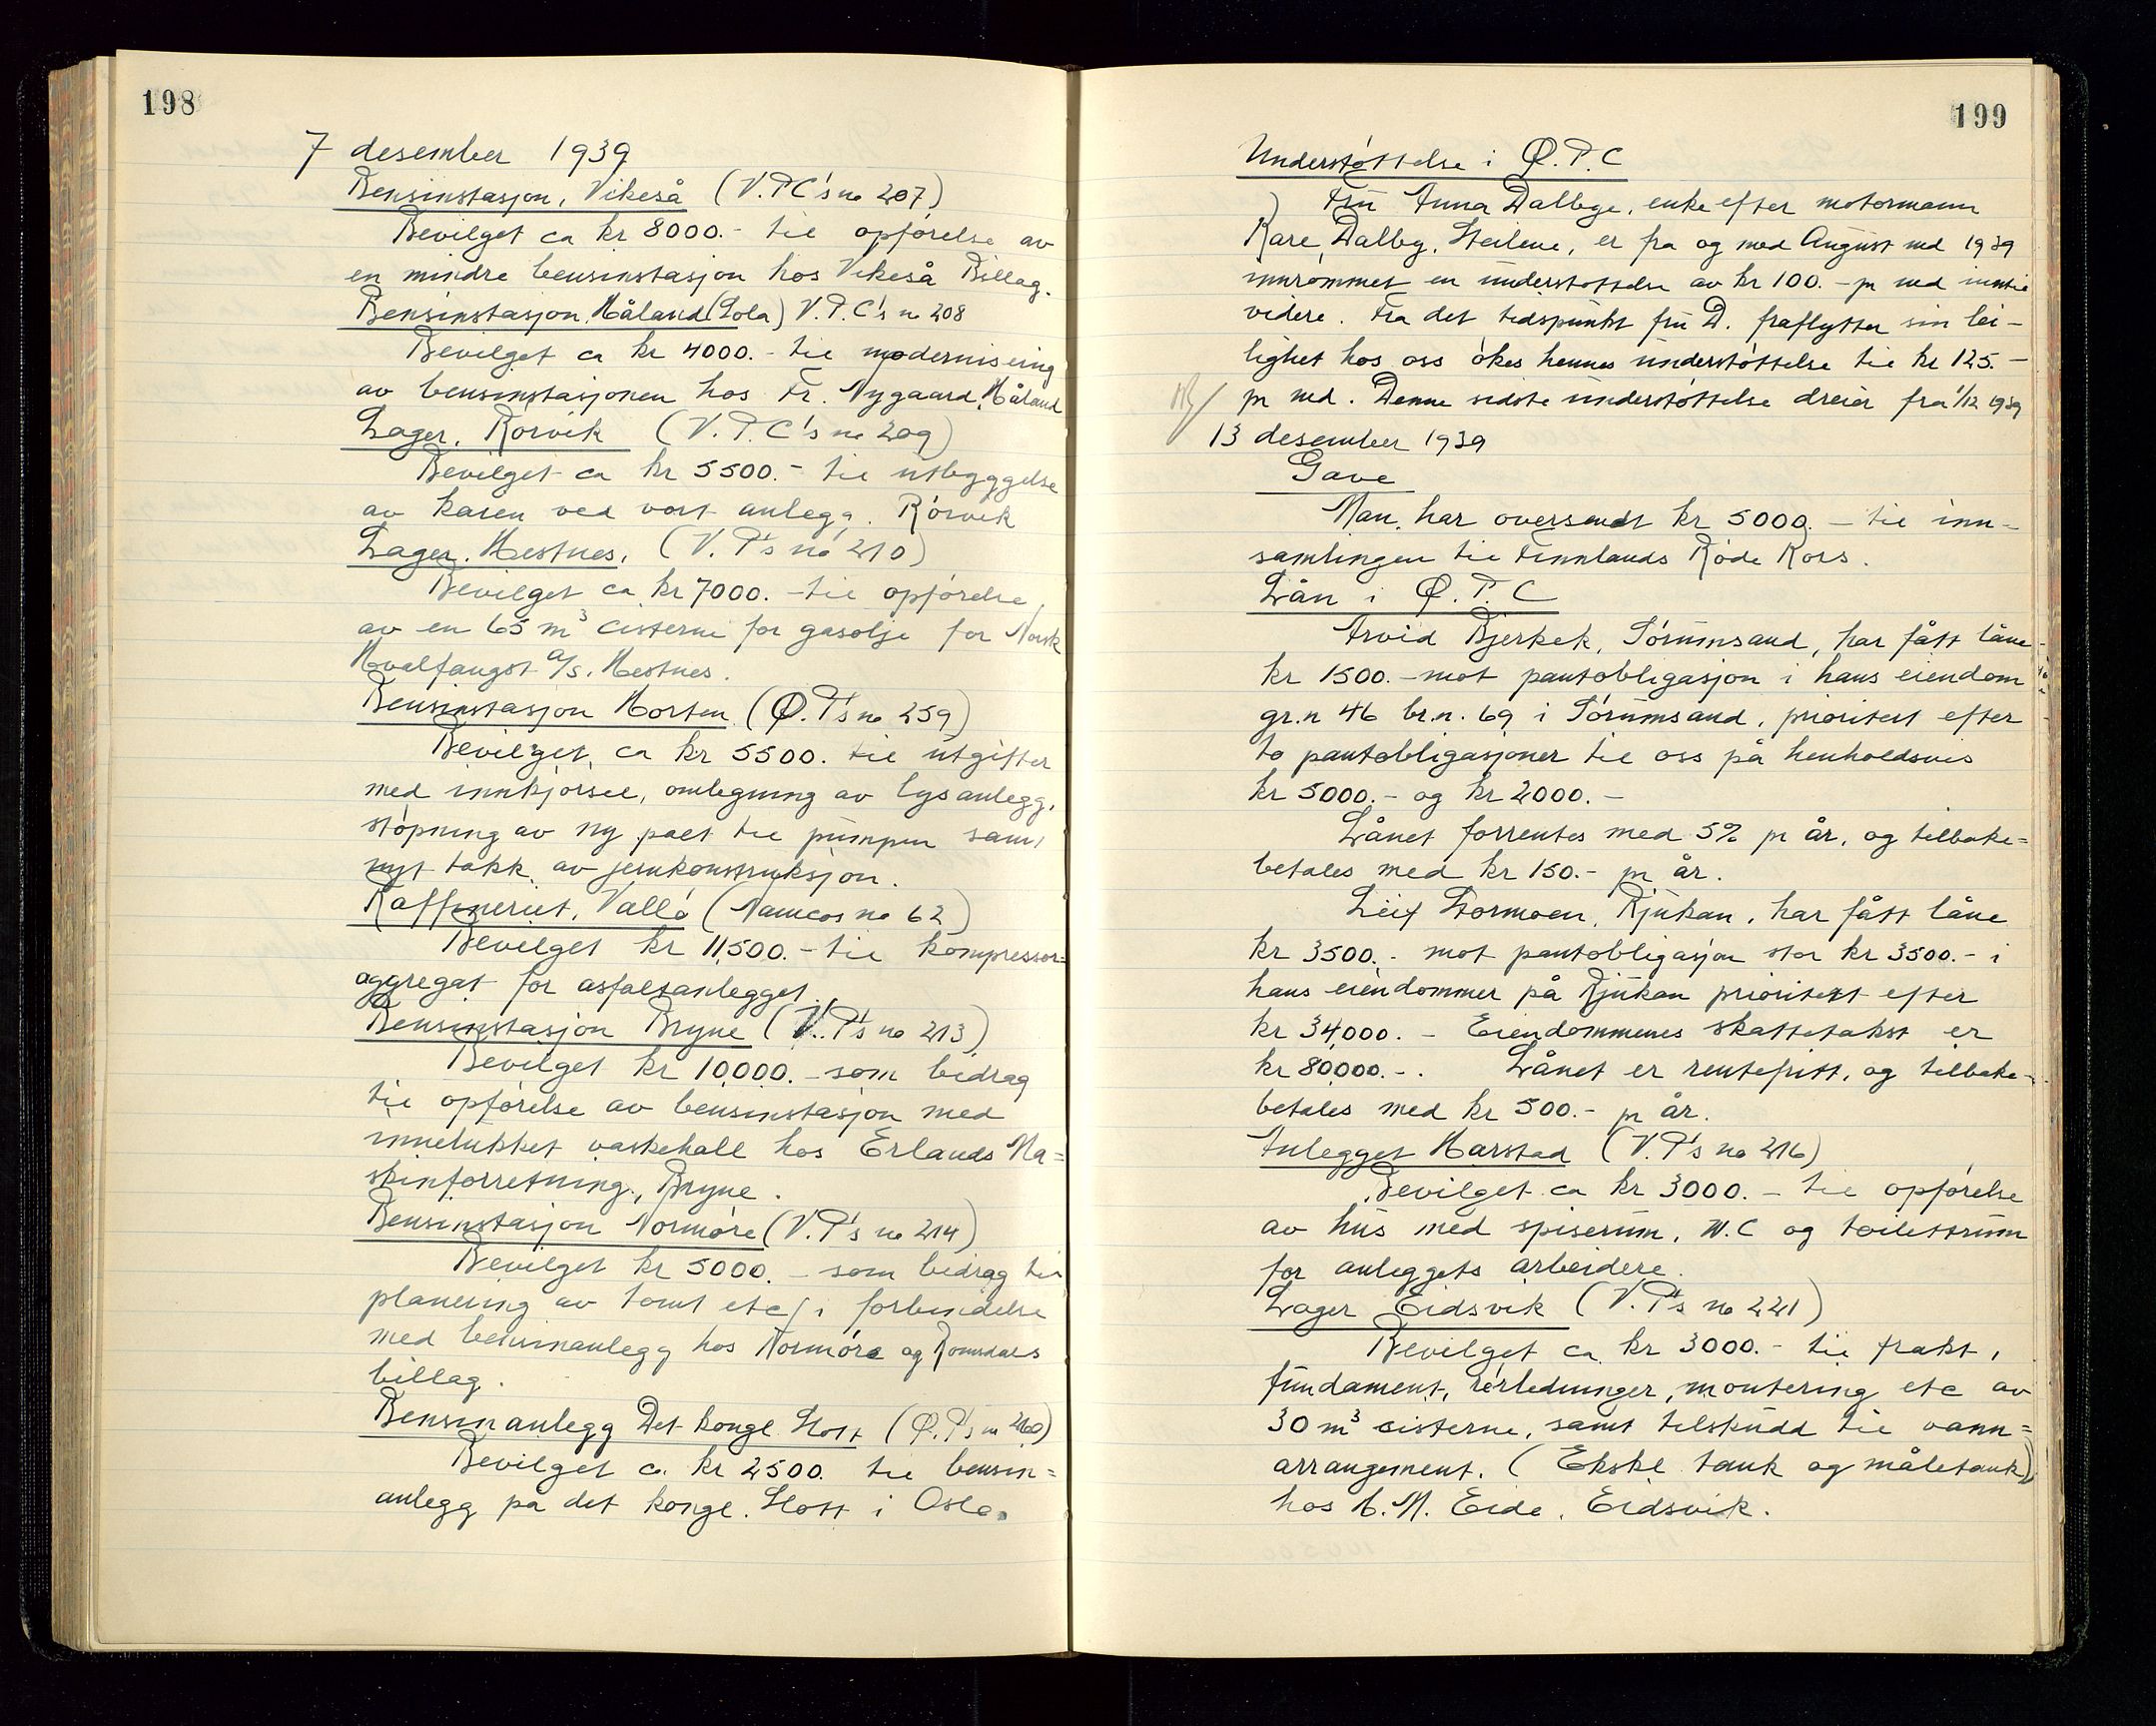 198
7 desember 1939
Bensinstasjon, Vikeså (V.P.C's no 207)
Bevilget ca kr 8000.- til opførelse av
en mindre bensinstasjon hos Vikeså Billag.
Bensinstasjon, Håland (Sola) V.P.C's no 208
Bevilget ca kr 4000.- til modernisering
av bensinstasjonen hos Fr. Nygaard, Håland
Lager, Rørvik (V.P.C's no 209)
Bevilget ca kr 5500.- til utbyggelse
av kaien ved vort anlegg. Rørvik
Lager. Hestnes, (V.P's no 210)
Bevilget ca kr 7000.- til opførelse
av en 65 m³ cisterne for gasolje for Norsk
Hvalfangst a/s. Hestnes.
Bensinstasjon Horten (Ø.P's no 259)
Bevilget ca kr 5500. til utgifter
med innkjørsel, omlegning av lysanlegg,
støpning av ny palt til pumpen samt
nytt takk. av jernkonstruksjon.
Raffineriet, Vallø (Namcos no 62)
Bevilget kr 11,500.- til kompressor=
aggregat for asfaltanlegget.
Bensinstasjon Bryne (V.P's no 213)
Bevilget kr 10,000.- som bidrag
til opførelse av bensinstasjon med
innelukket vaskehall hos Erlands Ma=
skinforretning, Bryne.
Bensinstasjon Normøre (V.P's no 214)
Bevilget kr 5000.- som bidrag til
planering av tomt etc, i forbindelse
med bensinanlegg hos Normøre og Romsdals
billag.
Bensinanlegg Det kongl. Slott (Ø.P's no 260)
Bevilget ca. kr 2500. til bensin=
anlegg på det kongl. Slott i Oslo.
199
Understøttelse i Ø.P.C
Fru Anna Dalbye, enke efter motormann
Kåre Dalby, Steilene, er fra og med August md 1939
innrømmet en understøttelse av kr 100.- pr md inntil
videre. Fra det tidspunkt fru D. fraflytter sin lei-
lighet hos oss økes hennes understøttelse til kr 125.-
pr md. Denne sidste understøttelse dreier fra 1/12 1939
13 desember 1939
Gave
Man har oversendt kr 5000.- til inn=
samlingen til Finnlands Røde Kors.
Lån i Ø.P.C
Arvid Bjerkek, Sørumsand, har fått låne
kr 1500.- mot pantobligasjon i hans eiendom
gr.n 46 br.n. 69 i Sørumsand, prioritert efter
to pantobligasjoner til oss på henholdsvis
kr 5000.- og kr 2000.-
Lånet forrentes med 5% pr år, og tilbake=
betales med kr 150.- pr år.
Leif Dormoen, Rjukan, har fått låne
kr 3500.- mot pantobligasjon stor kr 3500.- i
hans eiendommer på Rjukan prioritert efter
kr 34,000.- Eiendommenes skattetakst er
kr 80,000.-. Lånet er rentefritt, og tilbake-
betales med kr 500.- pr år.
Anlegget Harstad (V.P's no 216)
Bevilget ca kr 3000.- til opførelse
av hus med spiserum, W.C og toilettrum
for anleggets arbeidere.
Lager Eidsvik (V.P's no 221)
Bevilget ca kr 3000.- til frakt,
fundament, rørledninger, montering etc av
30 m³ cisterne, samt tilskudd til vann=
arrangement. (Ekskl tank og måletank)
hos M. Eide, Eidsvik.